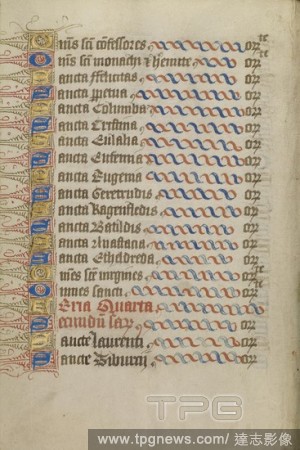 Om̄s sc̄i cōfessores orᵗᵉ
Om̄s sc̄i monachi & h̄emite orᵗᵉ
Sancta ffelicitas or
Sancta ꝑpetua or
Sancta Columba or
Sancta Cristina or
Sancta Eulalia or
Sancta Eufemia or
Sancta Eugenia or
Sancta Geretrudis or
Sancta Ragenfledis or
Sancta Batildis or
Sancta Anastasia or
Sancta Etheldreda or
Om̄es sc̄e virgines orᵗᵉ
Omnes sancti orᵗᵉ
Feria Quarta
secundū sar
Sancte Laurenti or
Sancte Tiburci or
TPG
www.tpgnews.com / 達志影像